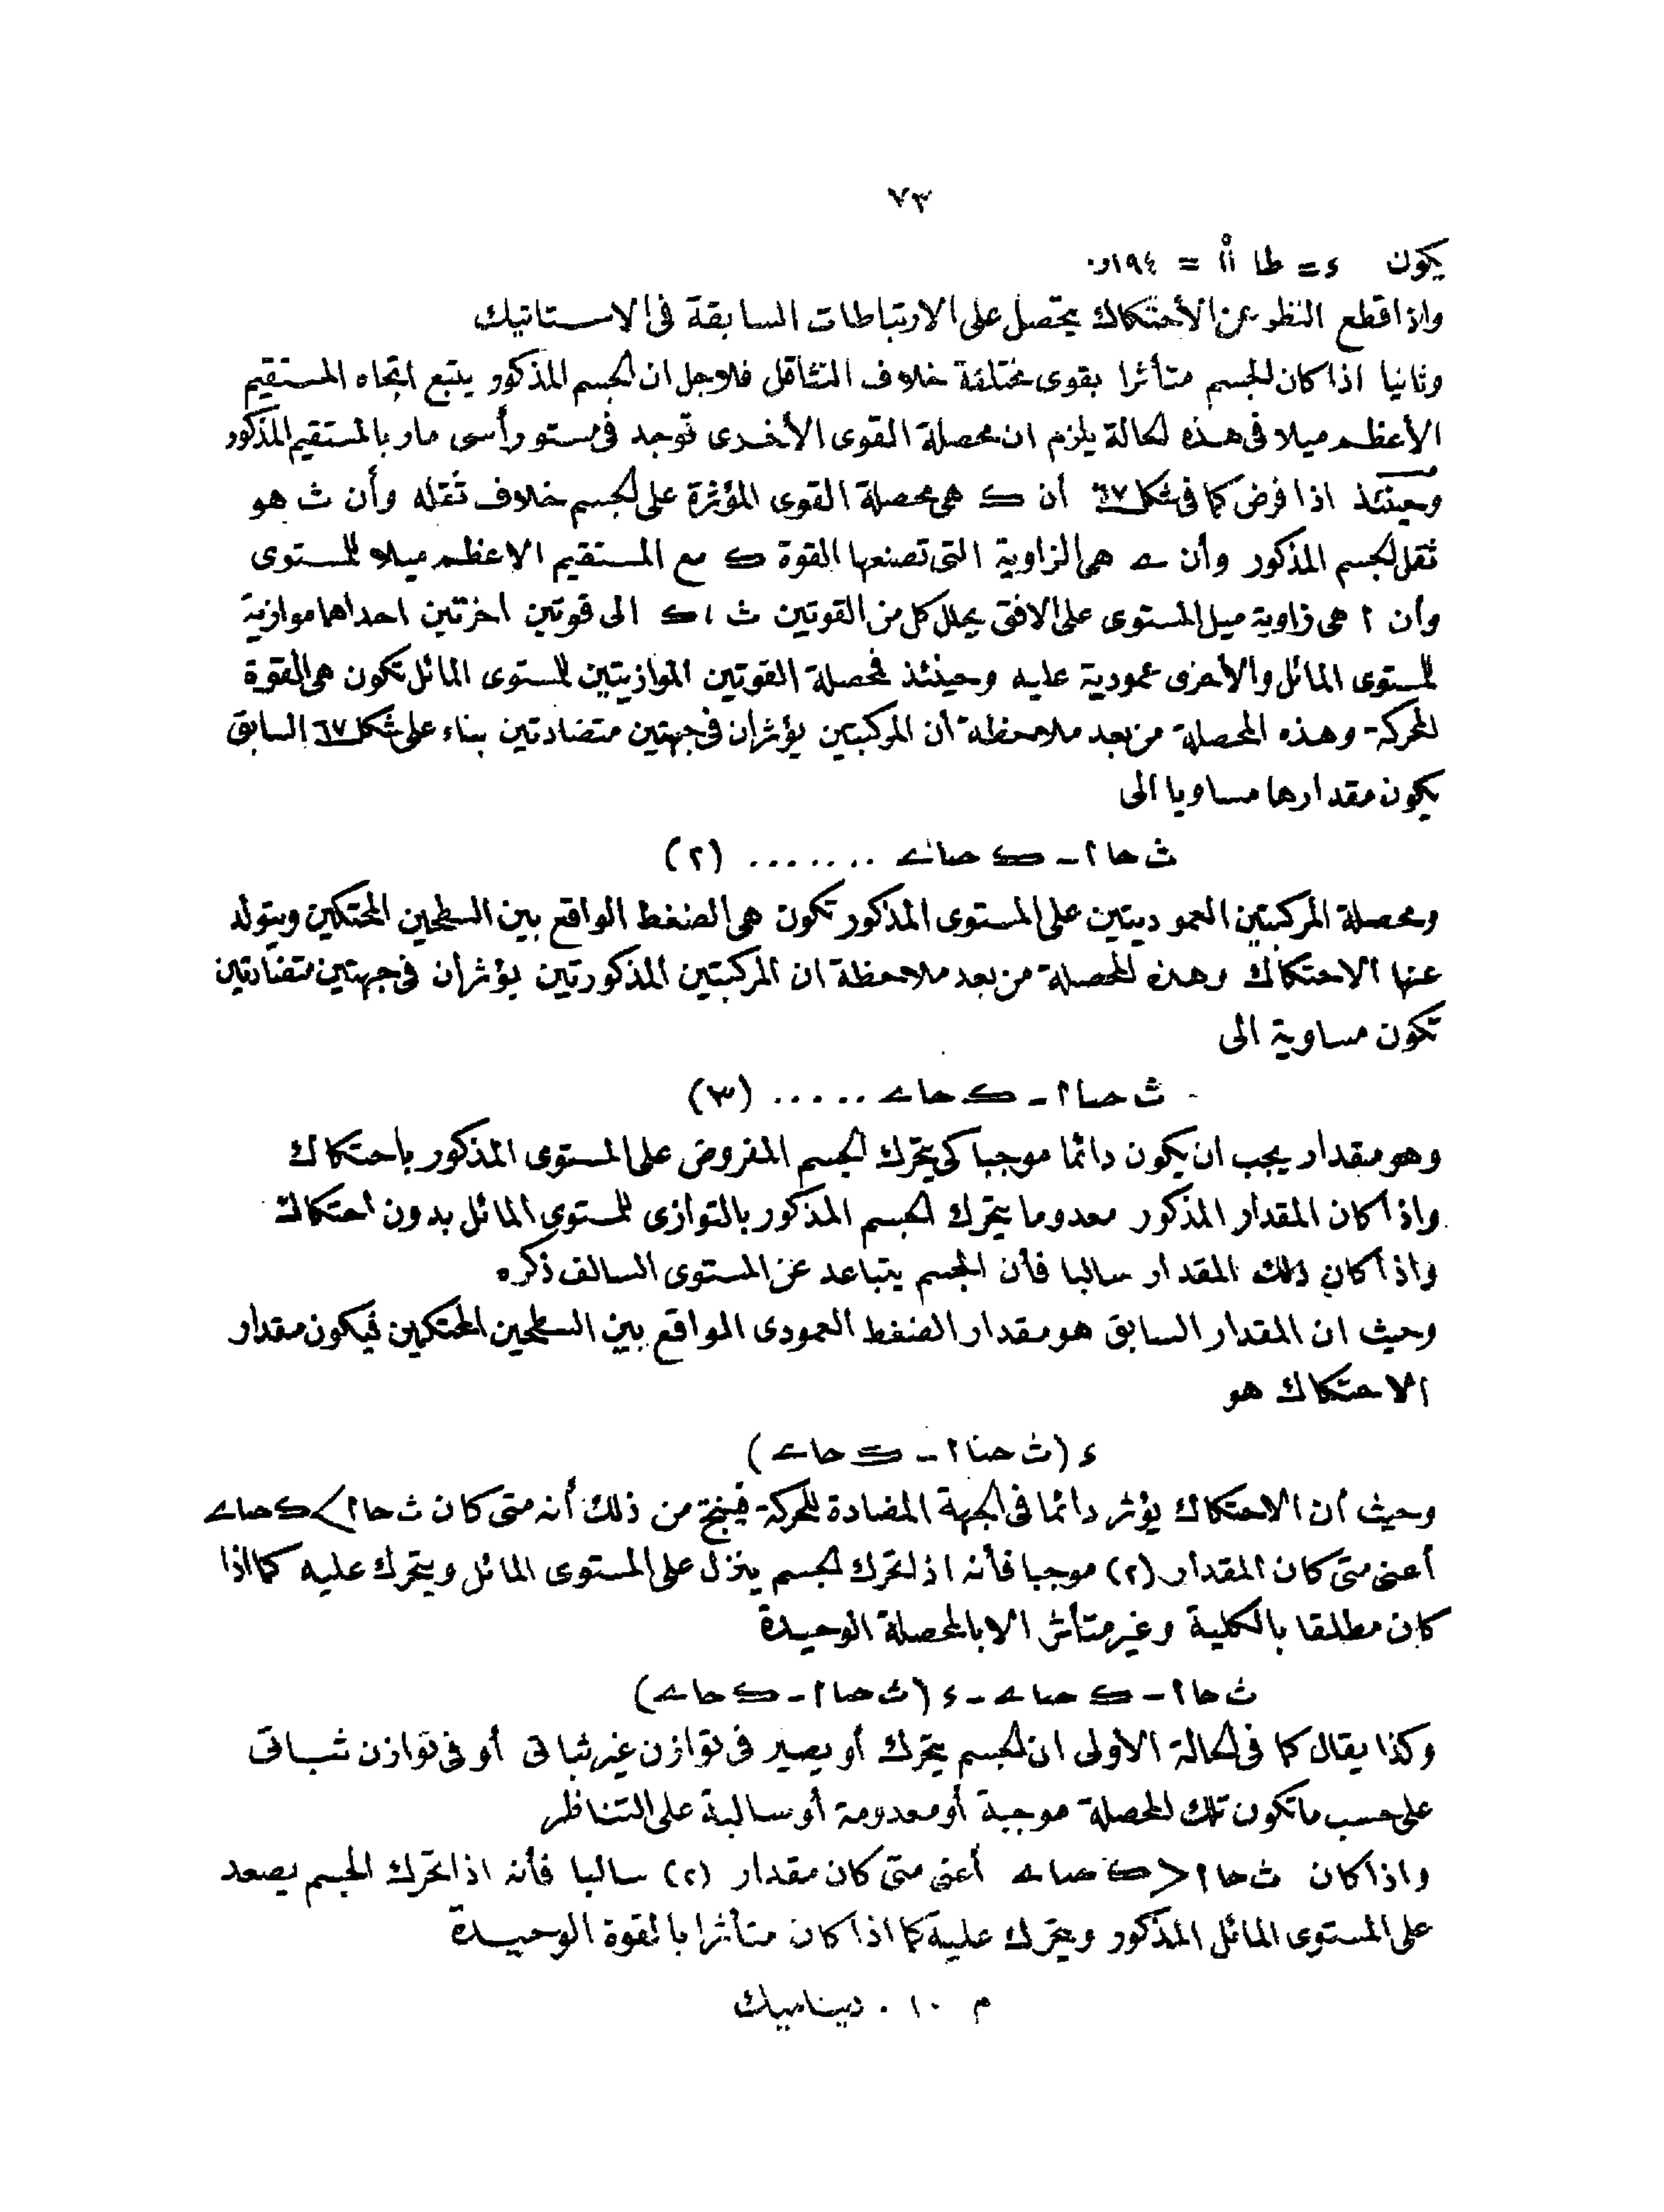 ٧٣
يكون ء = طا ١١° = ١٩٤و٠
واذا قطع النظر عن الأحتكاك يتحصل على الارتباطات السابقة فى الاستاتيك
وثانيا اذا كان الجسم متأثرا بقوى مختلفة خلاف التثاقل فلاجل ان الجسم المذكور يتبع اتجاه المستقيم
الأعظم ميلا فى هذه الحالة يلزم ان محصلة القوى الأخرى توجد فى مستو رأسى مار بالمستقيم المذكور
وحينئذ اذا فرض كما فى شكل ٦٧ أن ك هى محصلة القوى المؤثرة على الجسم خلاف ثقله وأن ث هو
ثقل الجسم المذكور وأن ے هى الزاوية التى تصنعها القوة ك مع المستقيم الاعظم ميلا للمستوى
وأن ا هى زاوية ميل المستوى على الافقى يحلل كل من القوتين ث ، ك الى قوتين اخرتين احداها موازية
للمستوى المائل والأخرى عمودية عليه وحينئذ فمحصلة القوتين الموازيتين للمستوى المائل تكون هى القوة
المحركة وهذه المحصلة من بعد ملاحظة أن المركبتين يؤثران فى جهتين متضادتين بناء على شكل ٦٧ السابق
يكون مقدارها مساويا الى
ث حا ا - ك حتا ے ....... (٢)
ومحصلة المركبتين العموديتين على المستوى المذكور تكون هى الضغط الواقع بين السطحين المحتكين ويتولد
عنها الاحتكاك وهذه المحصلة من بعد ملاحظة ان المركبتين المذكورتين يؤثران فى جهتين متضادتين
تكون مساوية الى
ث حتا ا - ك حا ے ..... (٣)
وهو مقدار يجب ان يكون دائما موجبا كى يتحرك الجسم المفروض على المستوى المذكور باحتكاك
واذا كان المقدار المذكور معدوما يتحرك الجسم المذكور بالتوازى للمستوى المائل بدون احتكاك
واذا كان ذلك المقدار سالبا فأن الجسم يتباعد عن المستوى السالف ذكره
وحيث ان المقدار السابق هو مقدار الضغط العمودى الواقع بين السطحين المحتكين فيكون مقدار
الاحتكاك هو
ء (ث حتا ا - ك حا ے)
وحيث أن الاحتكاك يؤثر دائما فى الجهة المضادة للحركة فينتج من ذلك أنه متى كان ث حا ا > ك حتا ے
أعنى متى كان المقدار (٢) موجبا فأنه اذا تحرك الجسم ينزل على المستوى المائل ويتحرك عليه كما اذا
كان مطلقا بالكلية وغير متأثر الا بالمحصلة الوحيدة
ث حا ا - ك حتا ے - ء (ث حتا ا - ك حا ے)
وكذا يقال كما فى الحالة الأولى ان الجسم يتحرك أو يصير فى توازن غير ثباتى أو فى توازن ثباتى
على حسب ما تكون تلك المحصلة موجبة أو معدومة أو سالبة على التناظر
واذا كان ث حا ا < ك حتا ے أعنى متى كان مقدار (٢) سالبا فأنه اذا تحرك الجسم يصعد
على المستوى المائل المذكور ويتحرك عليه كما اذا كان متأثرا بالقوة الوحيدة
م ١٠ . ديناميك